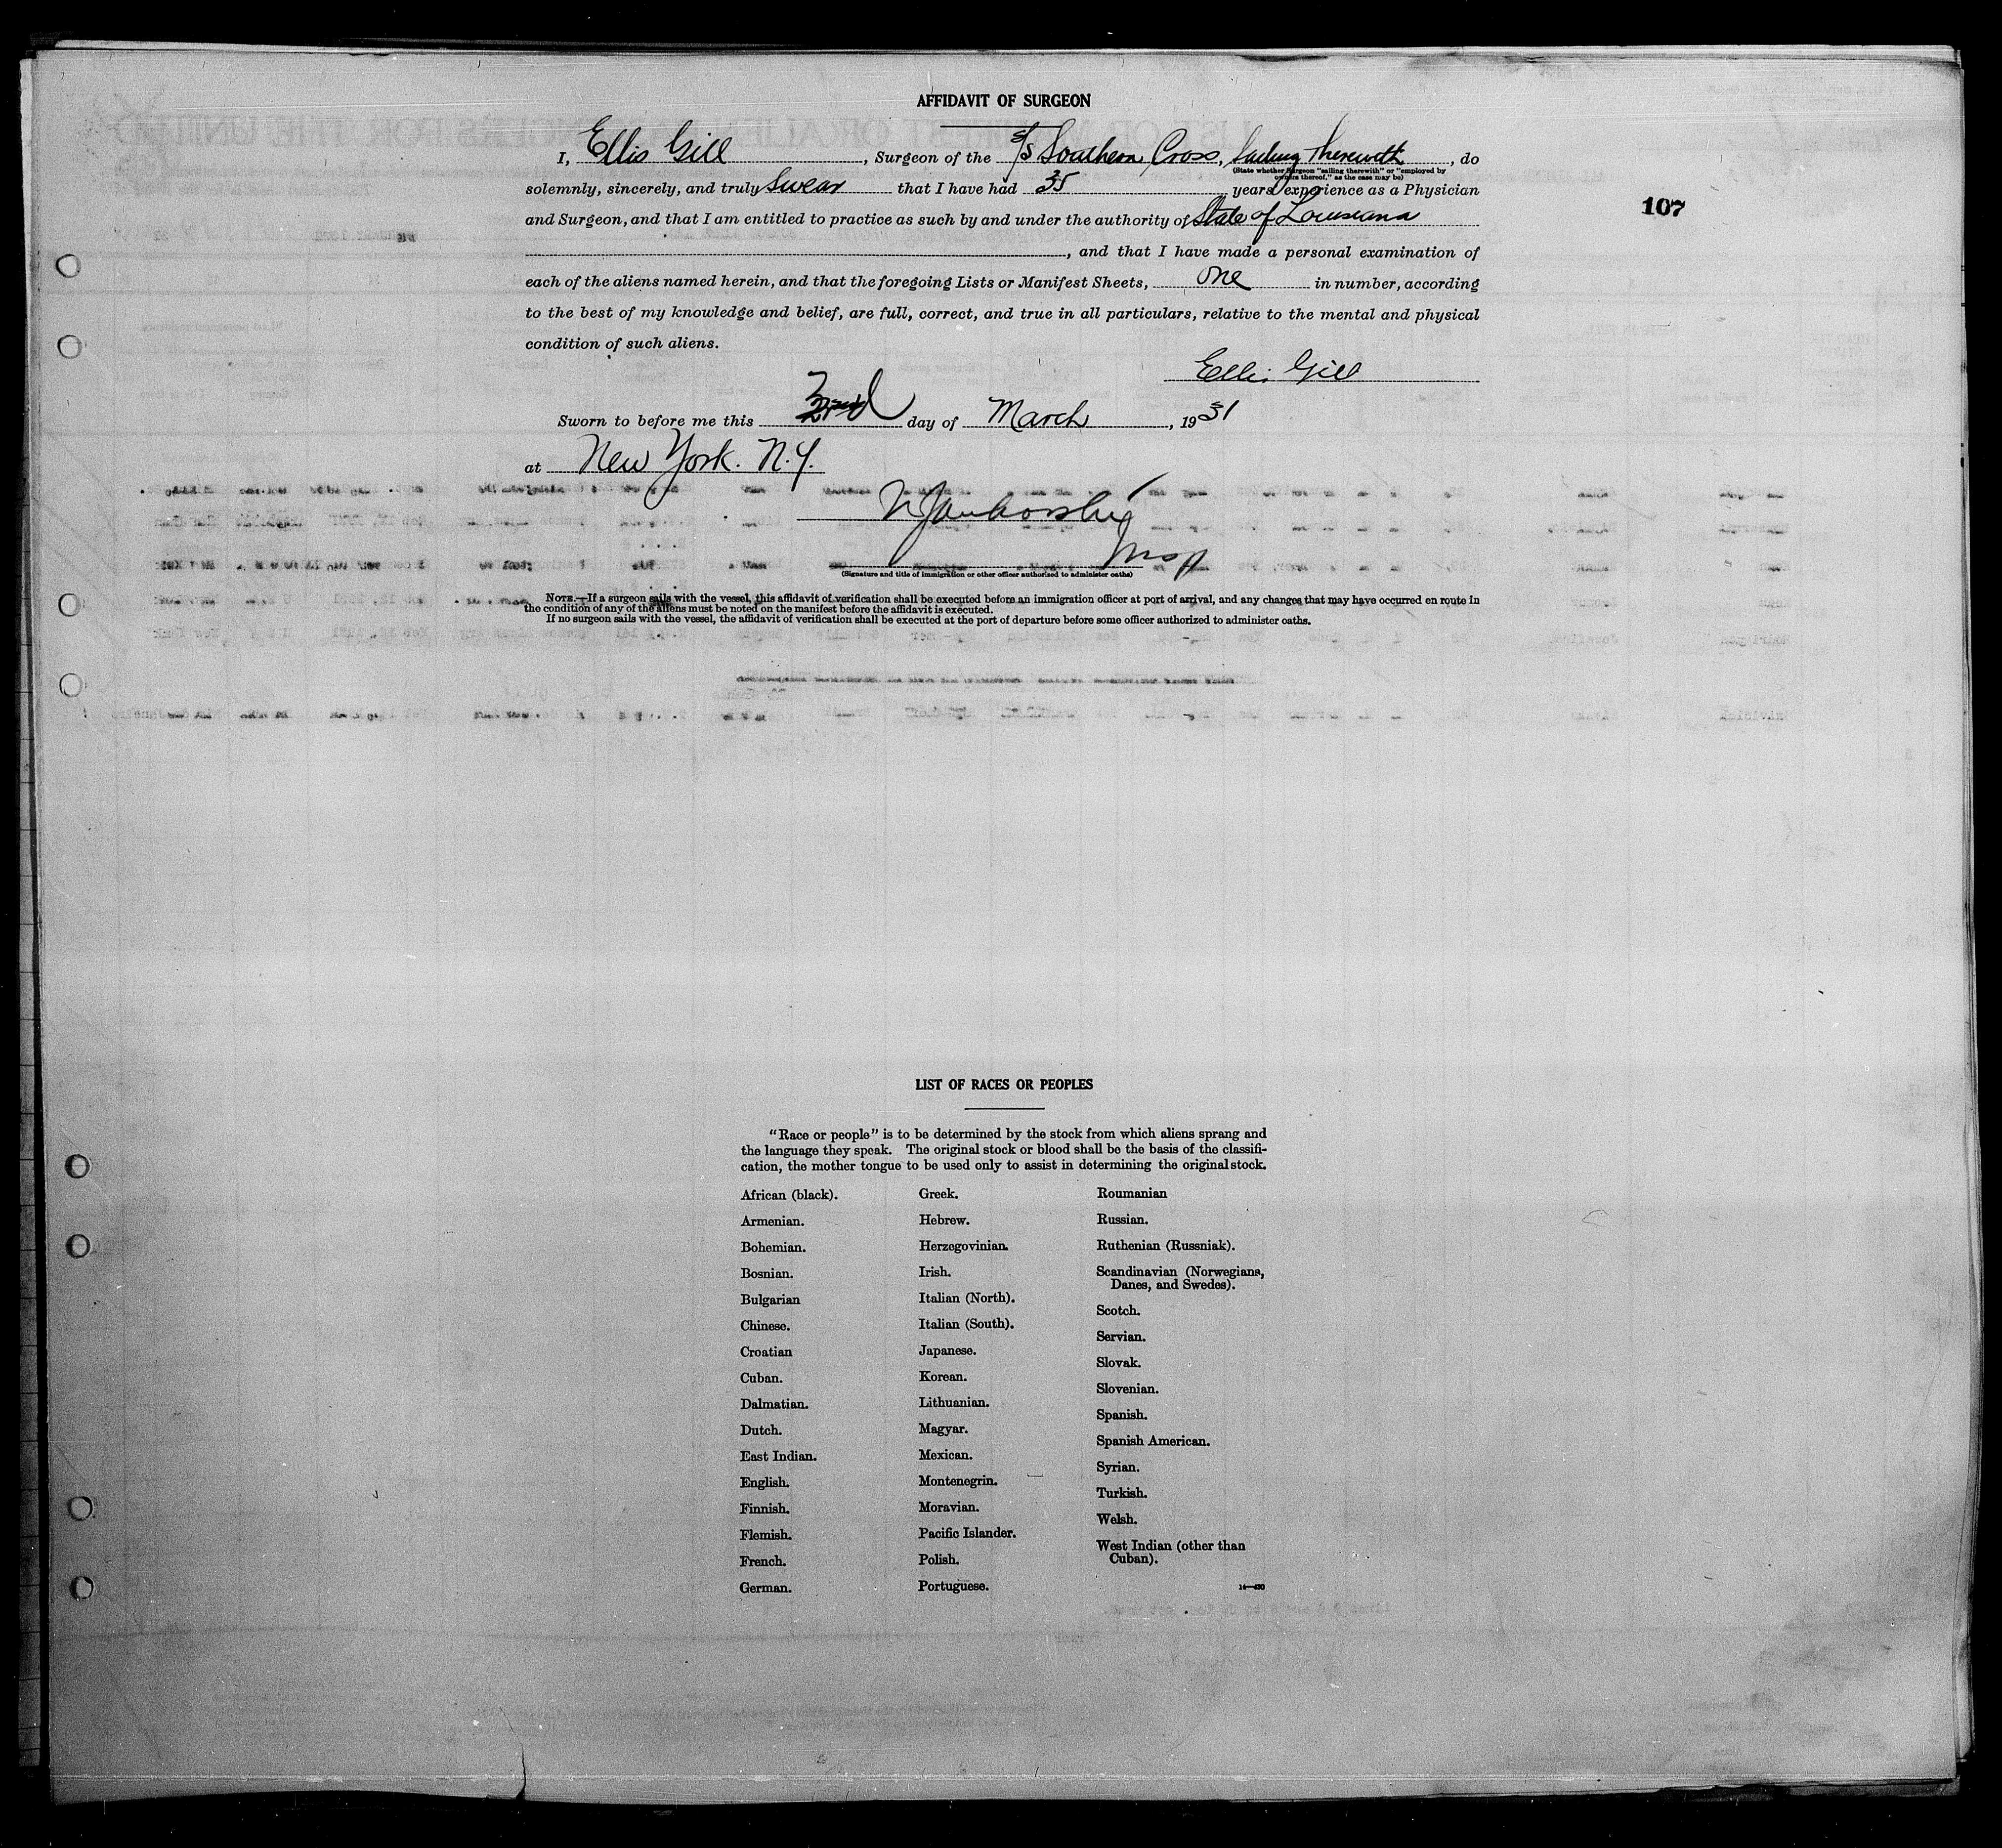 AFFIDAVIT OF SURGEON
I, Ellis Gill, Surgeon of the S/S Southern Cross, Sailing Therewith, do
(State whether Surgeon "sailing therewith" or "employed by
owners thereof," as the case may be)
solemnly, sincerely, and truly swear that I have had 35 years' experience as a Physician
107
and Surgeon, and that I am entitled to practice as such by and under the authority of State of Louisiana
, and that I have made a personal examination of
each of the aliens named herein, and that the foregoing Lists or Manifest Sheets, one in number, according
to the best of my knowledge and belief, are full, correct, and true in all particulars, relative to the mental and physical
condition of such aliens.
Ellis Gill
Sworn to before me this 3rd day of March, 1931
at New York. N.Y.
Insp
(Signature and title of immigration or other officer authorized to administer oaths)
NOTE.—If a surgeon sails with the vessel, this affidavit of verification shall be executed before an immigration officer at port of arrival, and any changes that may have occurred en route in
the condition of any of the aliens must be noted on the manifest before the affidavit is executed.
If no surgeon sails with the vessel, the affidavit of verification shall be executed at the port of departure before some officer authorized to administer oaths.
LIST OF RACES OR PEOPLES
"Race or people" is to be determined by the stock from which aliens sprang and
the language they speak. The original stock or blood shall be the basis of the classifi-
cation, the mother tongue to be used only to assist in determining the original stock.
African (black).
Armenian.
Bohemian.
Bosnian.
Bulgarian
Chinese.
Croatian
Cuban.
Dalmatian.
Dutch.
East Indian.
English.
Finnish.
Flemish.
French.
German.
Greek.
Hebrew.
Herzegovinian.
Irish.
Italian (North).
Italian (South).
Japanese.
Korean.
Lithuanian.
Magyar.
Mexican.
Montenegrin.
Moravian.
Pacific Islander.
Polish.
Portuguese.
Roumanian
Russian.
Ruthenian (Russniak).
Scandinavian (Norwegians,
Danes, and Swedes).
Scotch.
Servian.
Slovak.
Slovenian.
Spanish.
Spanish American.
Syrian.
Turkish.
Welsh.
West Indian (other than
Cuban).